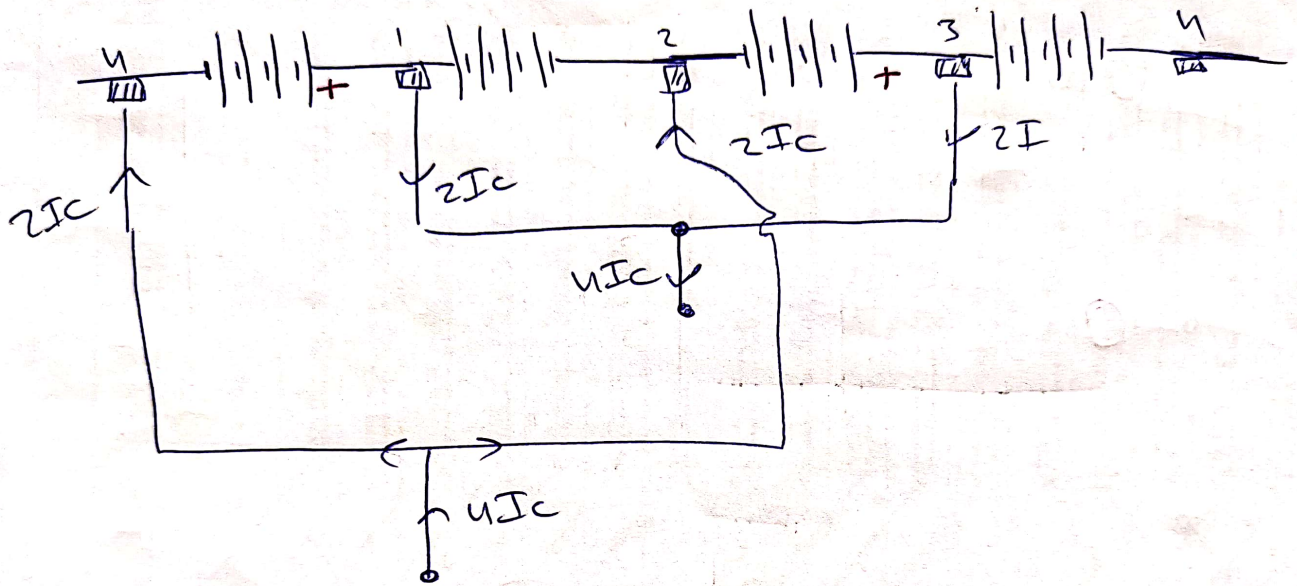 4 1 2 3 4
+ +
2Ic 2Ic 2Ic 2I
4Ic
4Ic